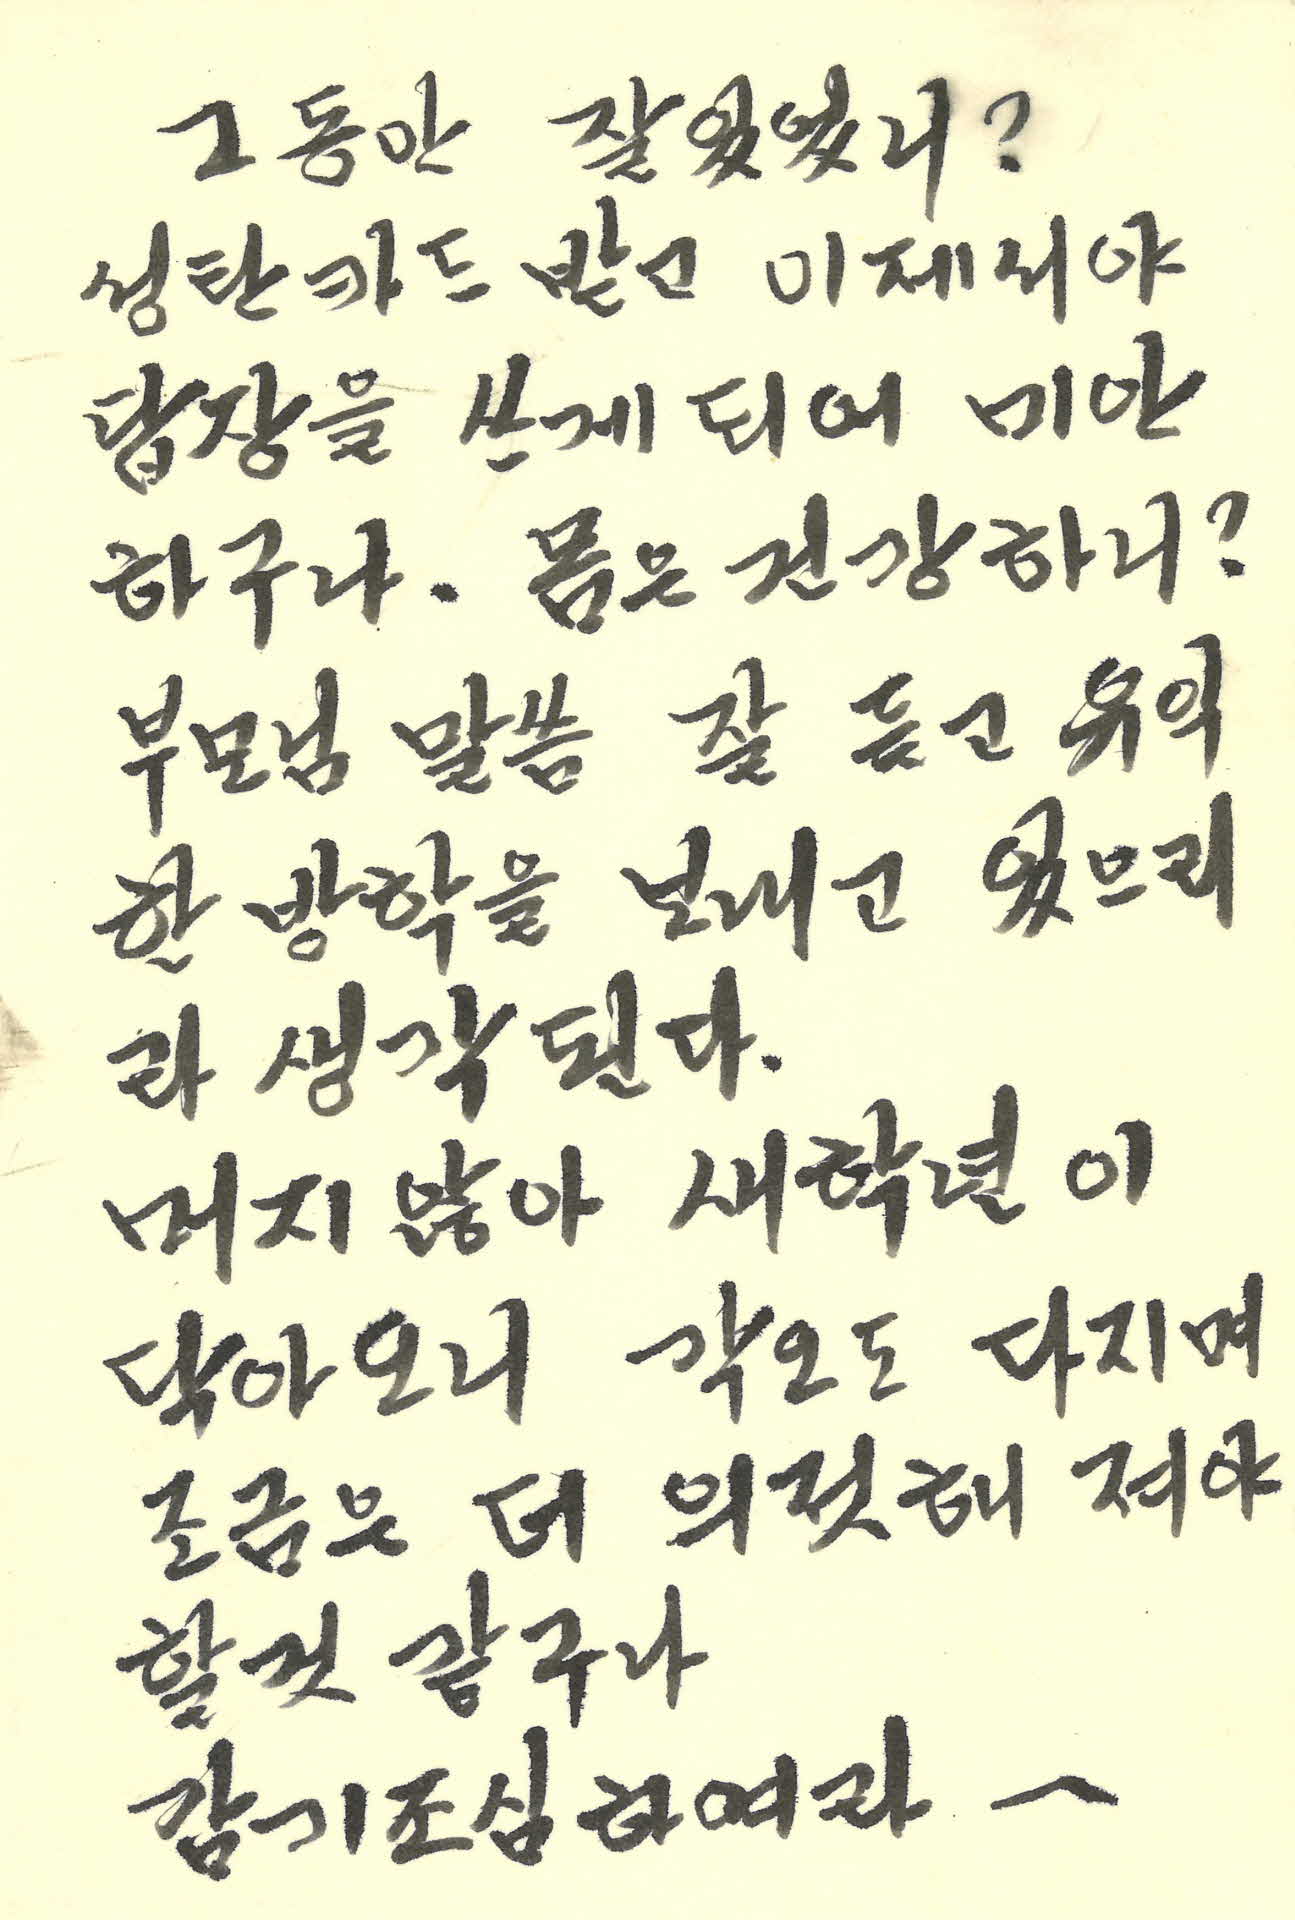 그동안 잘있었니?
성탄카드 받고 이제서야
답장을 쓰게되어 미안
하구나. 몸은 건강하니?
부모님 말씀 잘 듣고 유익
한 방학을 보내고 있으리
라 생각된다.
머지않아 새학년이
닥아오니 각오도 다지며
조금은 더 의젓해 져야
할것 같구나
감기조심하여라